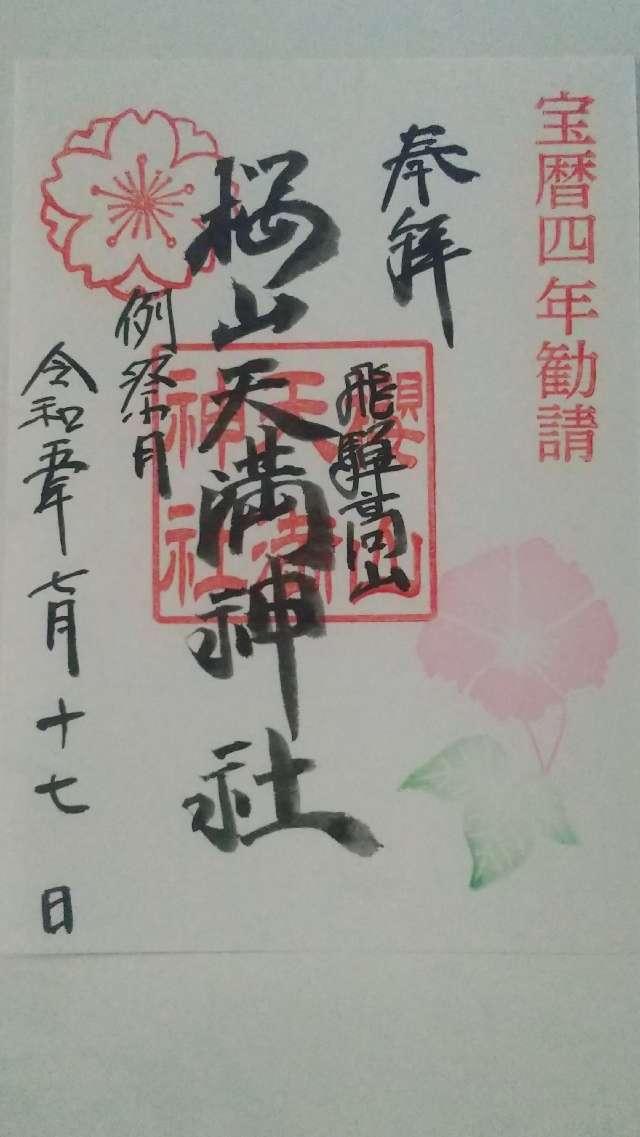 宝暦四年勧請
奉拝
飛騨高山
櫻山天満神社
桜山天満神社
例祭月
令和五年七月十七日